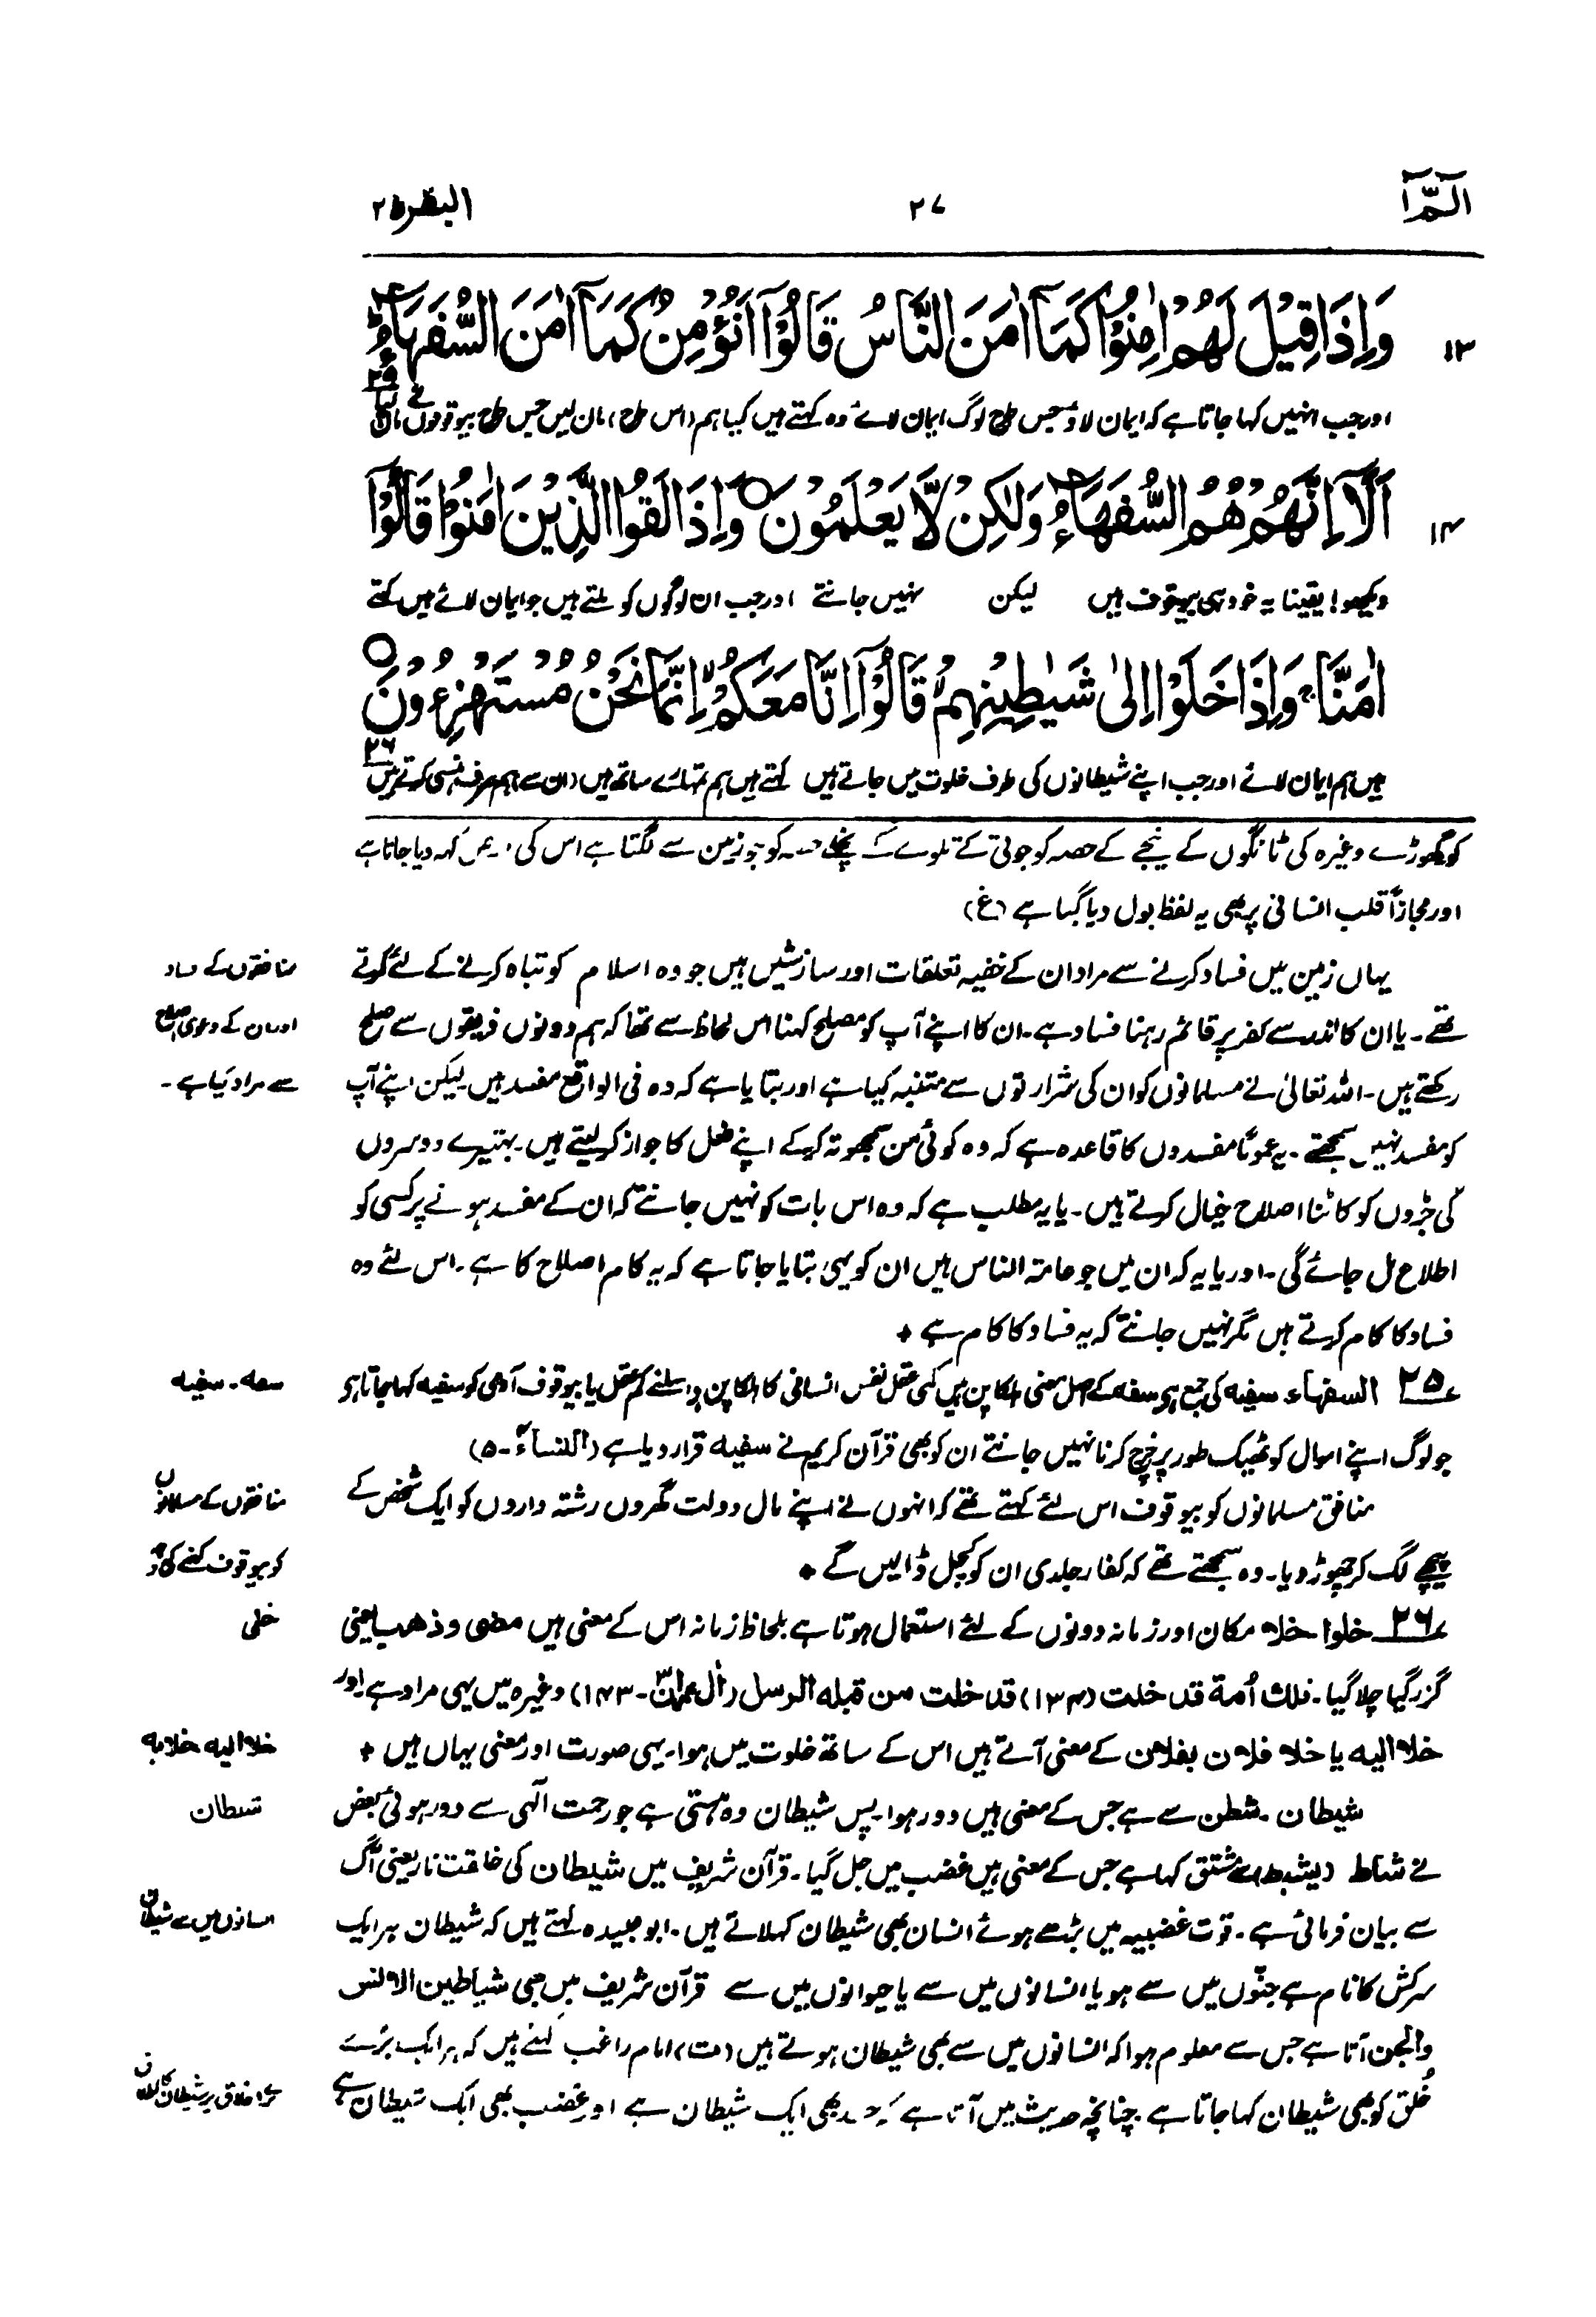 الٓمّٓ ا
۲۷
البقرة ۲
۱۳ وَاِذَا قِيْلَ لَهُمْ اٰمِنُوْا كَمَآ اٰمَنَ النَّاسُ قَالُوْٓا اَنُؤْمِنُ كَمَآ اٰمَنَ السُّفَهَآءُ ؕ
۲۵
اور جب انہیں کہا جاتا ہے کہ ایمان لاؤ جس طرح لوگ ایمان لائے وہ کہتے ہیں کیا ہم (اس طرح) مان لیں جس طرح بیوقوفوں نے مان لیا
۱۴ اَلَآ اِنَّهُمْ هُمُ السُّفَهَآءُ وَلٰكِنْ لَّا يَعْلَمُوْنَ ○ وَاِذَا لَقُوا الَّذِيْنَ اٰمَنُوْا قَالُوْٓا
دیکھو! یقینا یہ خود ہی بیوقوف ہیں لیکن نہیں جانتے اور جب ان لوگوں کو ملتے ہیں جو ایمان لائے ہیں کہتے
اٰمَنَّا ۚ وَاِذَا خَلَوْا اِلٰى شَيٰطِيْنِهِمْ ۙ قَالُوْٓا اِنَّا مَعَكُمْ ۙ اِنَّمَا نَحْنُ مُسْتَهْزِءُوْنَ ○
۲۶
ہیں ہم ایمان لائے اور جب اپنے شیطانوں کی طرف خلوت میں جاتے ہیں کہتے ہیں ہم تمہارے ساتھ ہیں (ان سے) ہم صرف ہنسی کرتے ہیں
کو گھوڑے وغیرہ کی ٹانگوں کے نیچے کے حصہ کو جوتی کے تلوے کے نچلے حصہ کو جو زمین سے لگتا ہے اس کی کہہ دیا جاتا ہے
اور مجازاً قلب انسانی پر بھی یہ لفظ بول دیا گیا ہے (غ)
یہاں زمین میں فساد کرنے سے مراد ان کے خفیہ تعلقات اور سازشیں ہیں جو وہ اسلام کو تباہ کرنے کے لئے کرتے
منافقوں کے فساد
تھے۔ یا ان کا اندر سے کفر پر قائم رہنا فساد ہے۔ ان کا اپنے آپ کو مصلح کہنا اس لحاظ سے تھا کہ ہم دونوں فریقوں سے صلح
اور ان کے دعوی اصلاح
رکھتے ہیں۔ اللہ تعالیٰ نے مسلمانوں کو ان کی شرارتوں سے متنبہ کیا ہے اور بتایا ہے کہ وہ فی الواقع مفسد ہیں لیکن اپنے آپ
سے مراد کیا ہے۔
کو مفسد نہیں سمجھتے۔ یہ عموماً مفسدوں کا قاعدہ ہے کہ وہ کوئی من سمجھوتہ کرکے اپنے فعل کا جواز کر لیتے ہیں۔ بہتیرے دوسروں
کی جڑوں کو کاٹنا اصلاح خیال کرتے ہیں۔ یا یہ مطلب ہے کہ وہ اس بات کو نہیں جانتے کہ ان کے مفسد ہونے پر کسی کو
اطلاع مل جائے گی۔ اور یا یہ کہ ان میں جو عامۃ الناس ہیں ان کو یہی بتایا جاتا ہے کہ یہ کام اصلاح کا ہے۔ اس لئے وہ
فساد کا کام کرتے ہیں مگر نہیں جانتے کہ یہ فساد کا کام ہے ✦
۲۵ السفهاء سفیہ کی جمع ہے سفہ کے اصل معنی ہلکا پن ہیں کمی عقل نفس انسانی کا ہلکا پن ہے اسلئے کم عقل یا بیوقوف آدمی کو سفیہ کہا جاتا ہے
سفه۔ سفیه
جو لوگ اپنے اموال کو ٹھیک طور پر خرچ کرنا نہیں جانتے ان کو بھی قرآن کریم نے سفیہ قرار دیا ہے (النساء۔۵)
منافق مسلمانوں کو بیوقوف اس لئے کہتے تھے کہ انہوں نے اپنے مال دولت گھروں رشتہ داروں کو ایک شخص کے
منافقوں کے مسلمانوں
پیچھے لگ کر چھوڑ دیا۔ وہ سمجھتے تھے کہ کفار جلدی ان کو کچل ڈالیں گے ✦
کو بیوقوف کہنے کی وجہ
۲۶ خلوا۔ خلا مکان اور زمانہ دونوں کے لئے استعمال ہوتا ہے بلحاظ زمانہ اس کے معنی ہیں مضى و ذهب یعنی
خلی
گزر گیا چلا گیا۔ تلك اُمة قد خلت (۱۳۴) قد خلت من قبله الرسل (اٰل عمران۳۔۱۴۳) وغیرہ میں یہی مراد ہے اور
خلا الیه یا خلا فلان بفلان کے معنی آتے ہیں اس کے ساتھ خلوت میں ہوا۔ یہی صورت اور معنی یہاں ہیں ✦
خلا الیه خلا به
شیطان۔ شطن سے ہے جس کے معنی ہیں دور ہوا۔ پس شیطان وہ ہستی ہے جو رحمت الٰہی سے دور ہوئی بعض
شیطان
نے شاط (یشیط) سے مشتق کہا ہے جس کے معنی ہیں غضب میں جل گیا۔ قرآن شریف میں شیطان کی خلقت نار یعنی آگ
سے بیان فرمائی ہے۔ قوت غضبیہ میں بڑھے ہوئے انسان بھی شیطان کہلاتے ہیں۔ ابو عبیدہ کہتے ہیں کہ شیطان ہر ایک
انسانوں میں سے شیطان
سرکش کا نام ہے جنّوں میں سے ہو یا انسانوں میں سے یا حیوانوں میں سے قرآن شریف میں بھی شیاطین الانس
والجن آتا ہے جس سے معلوم ہوا کہ انسانوں میں سے بھی شیطان ہوتے ہیں (ت) امام راغب کہتے ہیں کہ ہر ایک بُرے
خُلق کو بھی شیطان کہا جاتا ہے۔ چنانچہ حدیث میں آتا ہے کہ حسد بھی ایک شیطان ہے اور غضب بھی ایک شیطان ہے
برے اخلاق پر شیطان کا اطلاق